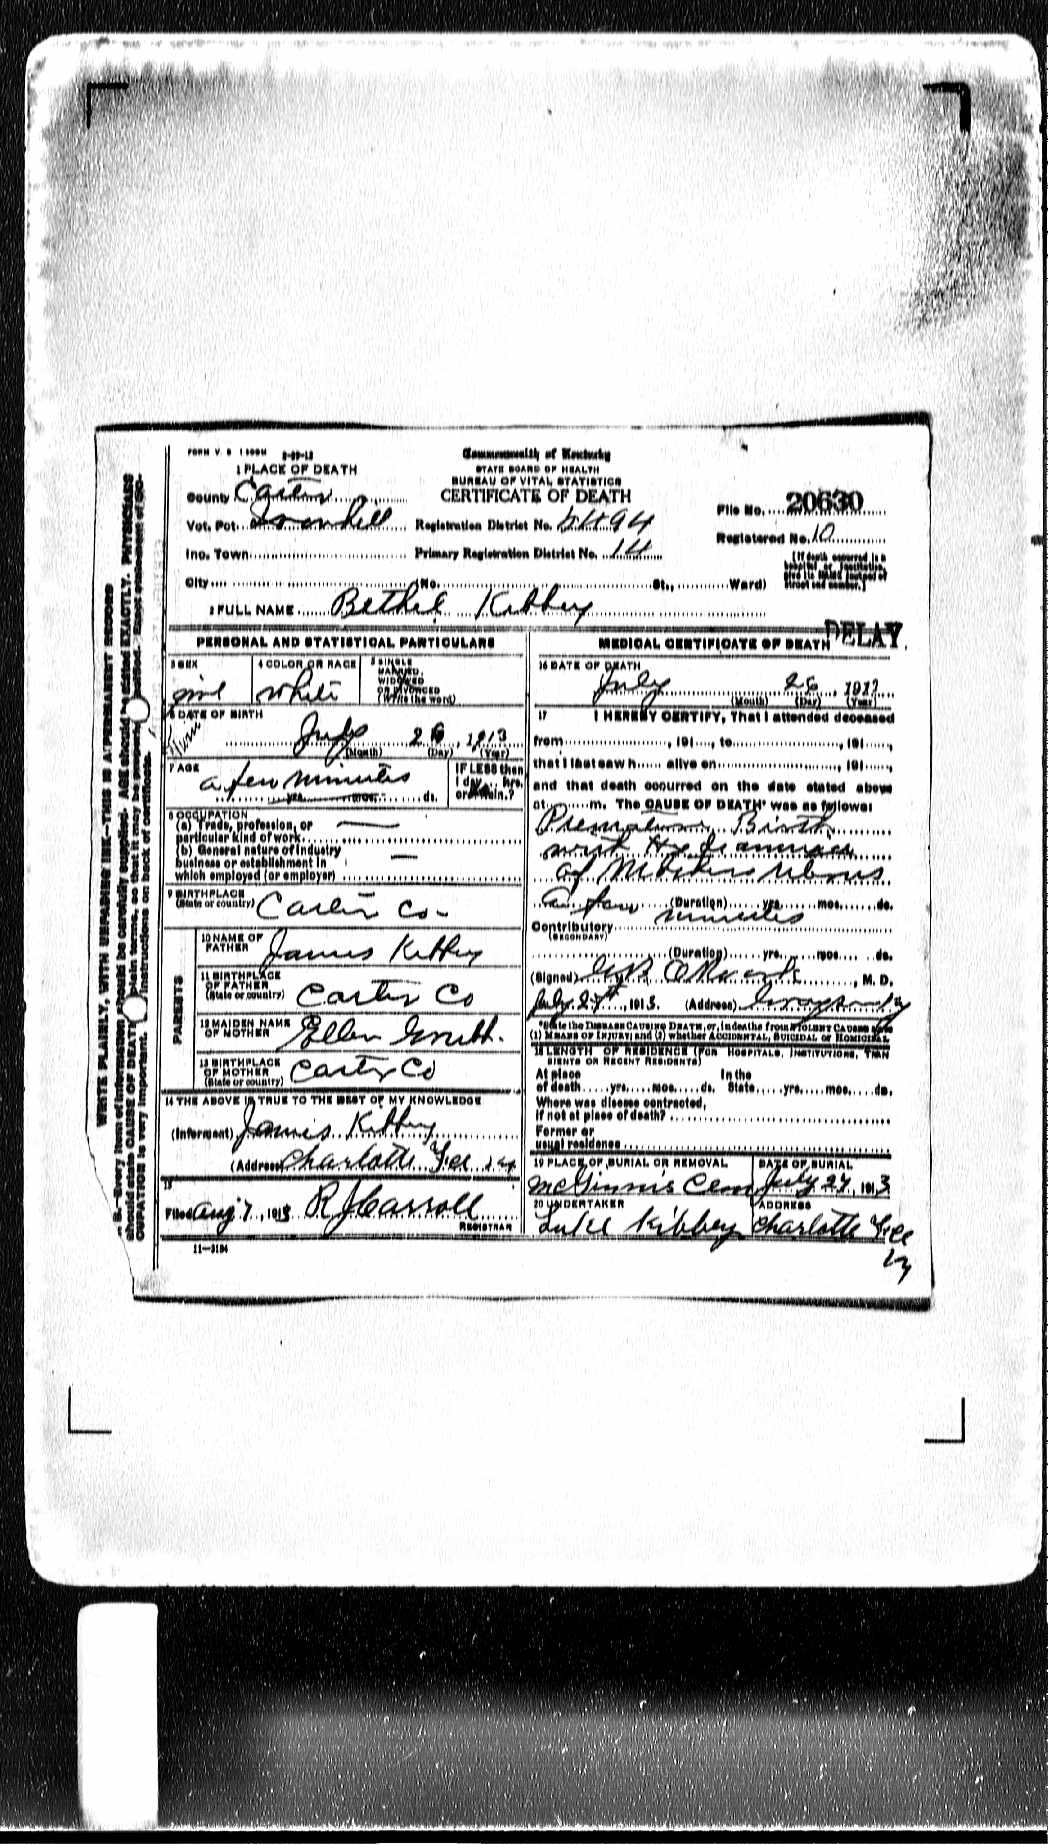 Commonwealth of Kentucky
STATE BOARD OF HEALTH
BUREAU OF VITAL STATISTICS
CERTIFICATE OF DEATH
1 PLACE OF DEATH
County Carter
Vot. Pct.
Inc. Town
City (No. St., Ward)
Registration District No.
Primary Registration District No. 14
File No. 20630
Registered No. 10
[If death occurred in a hospital or institution, give its NAME instead of street and number.]
2 FULL NAME Bethel Kibbey
DELAY
PERSONAL AND STATISTICAL PARTICULARS
3 SEX
girl
4 COLOR OR RACE
white
5 SINGLE
MARRIED,
WIDOWED
OR DIVORCED
(Write the word)
6 DATE OF BIRTH
26, 1913
(Month) (Day) (Year)
7 AGE
a few minutes
yrs. mos. ds.
IF LESS than
1 day, hrs.
or min.?
8 OCCUPATION
(a) Trade, profession, or
particular kind of work
(b) General nature of industry
business or establishment in
which employed (or employer)
9 BIRTHPLACE
(State or country) Carter Co-
PARENTS
10 NAME OF
FATHER James Kibbey
11 BIRTHPLACE
OF FATHER
(State or country) Carter Co
12 MAIDEN NAME
OF MOTHER Ellen
13 BIRTHPLACE
OF MOTHER
(State or country) Carter Co
14 THE ABOVE IS TRUE TO THE BEST OF MY KNOWLEDGE
(Informant) James Kibbey
(Address) Charlotte
15
Filed Aug 7, 1913 R J Carroll
REGISTRAR
11—3184
MEDICAL CERTIFICATE OF DEATH
16 DATE OF DEATH
July 26, 1913
(Month) (Day) (Year)
17 I HEREBY CERTIFY, That I attended deceased
from , 191 , to , 191 ,
that I last saw h alive on , 191 ,
and that death occurred on the date stated above
at m. The CAUSE OF DEATH* was as follows:
Premature Birth
of
a few minutes (Duration) yrs. mos. ds.
Contributory
(SECONDARY)
(Duration) yrs. mos. ds.
(Signed) , M. D.
July 27th, 1913. (Address)
*State the DISEASE CAUSING DEATH, or, in deaths from VIOLENT CAUSES state
(1) MEANS OF INJURY; and (2) whether ACCIDENTAL, SUICIDAL or HOMICIDAL
18 LENGTH OF RESIDENCE (FOR HOSPITALS, INSTITUTIONS, TRAN
SIENTS OR RECENT RESIDENTS)
At place In the
of death yrs. mos. ds. State yrs. mos. ds.
Where was disease contracted,
if not at place of death?
Former or
usual residence
19 PLACE OF BURIAL OR REMOVAL
McGinnis Cem
DATE OF BURIAL
July 27, 1913
20 UNDERTAKER
Luke Kibbey
ADDRESS
Charlotte
WRITE PLAINLY, WITH UNFADING INK—THIS IS A PERMANENT RECORD